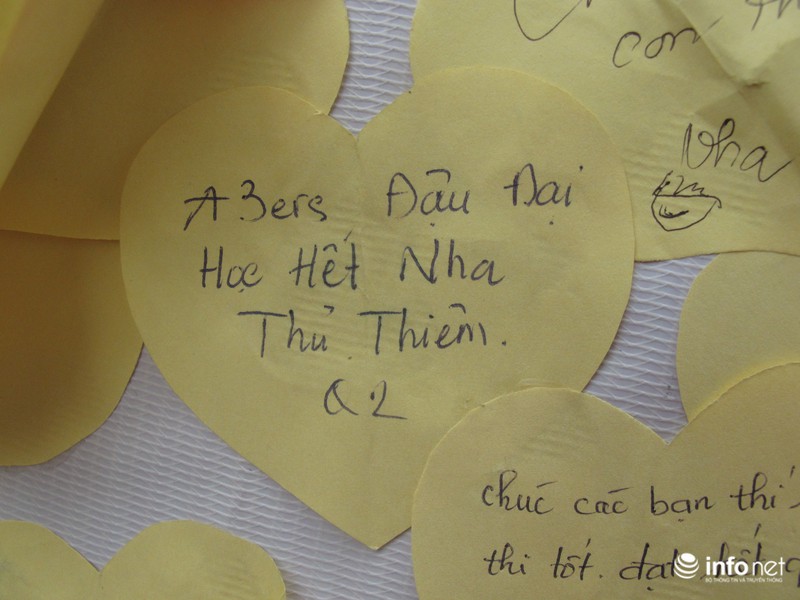 con
Nha
A3ers Đậu Đại
Học Hết Nha
Thủ Thiêm.
Q2
chúc các bạn thí
thi tốt. đạt
infonet
BỘ THÔNG TIN VÀ TRUYỀN THÔNG